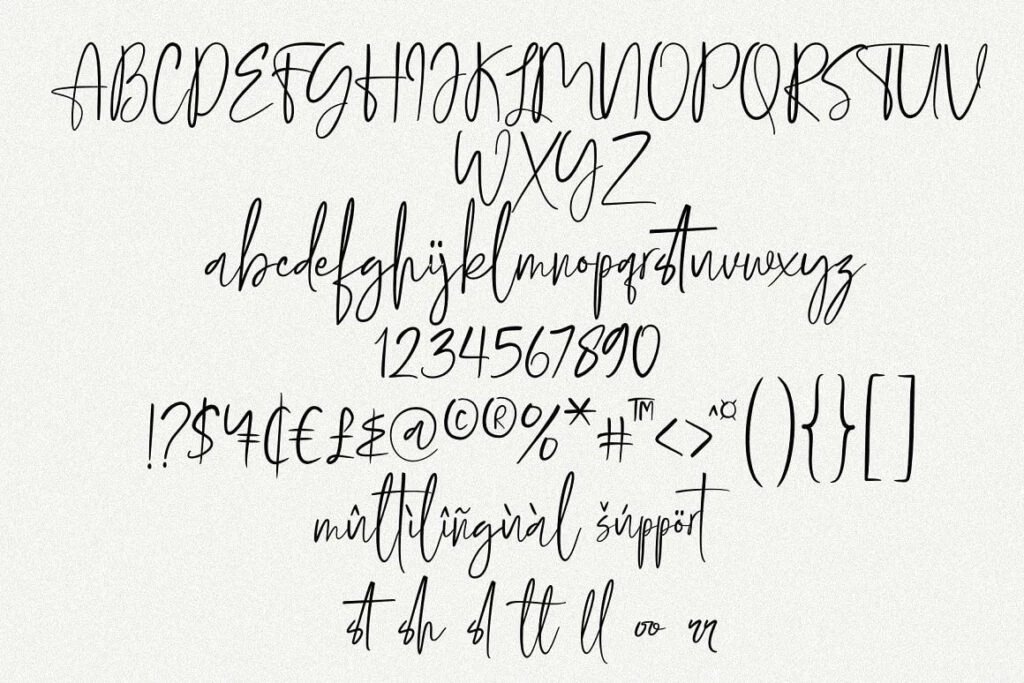 ABCDEFGHIJKLMNOPQRSTUV
WXYZ
abcdefghijklmnopqrstuvwxyz
1234567890
!?$¥₵€£&@©®%*#™<>^¤(){}[]
mûltìlîñgùàl šúppört
st sh sl tt ll oo rr